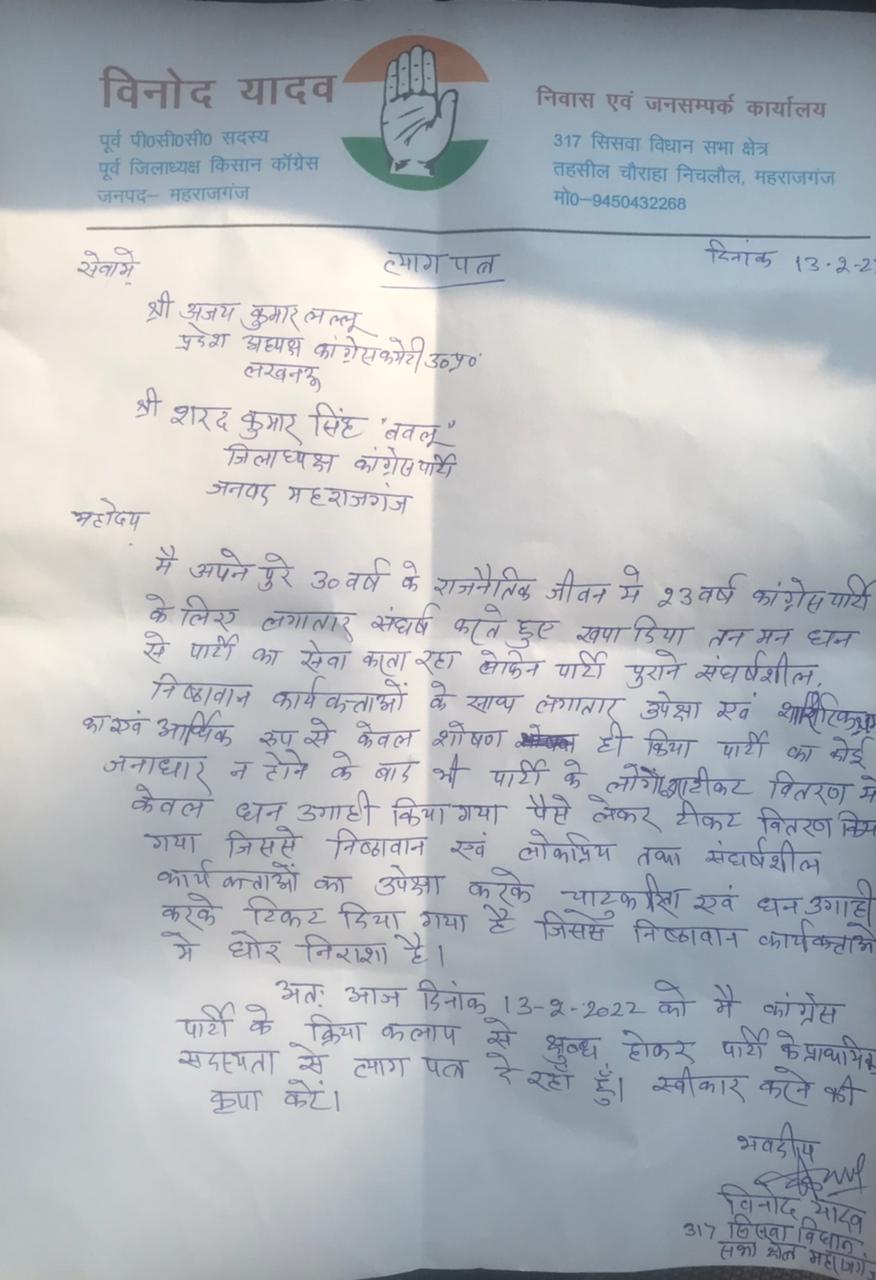 विनोद यादव
पूर्व पी0सी0सी0 सदस्य
पूर्व जिलाध्यक्ष किसान कॉंग्रेस
जनपद– महराजगंज
निवास एवं जनसम्पर्क कार्यालय
317 सिसवा विधान सभा क्षेत्र
तहसील चौराहा निचलौल, महराजगंज
मो0–9450432268
दिनांक 13-2-2
सेवामे
त्याग पत्र
श्री अजय कुमार लल्लू
प्रदेश अध्यक्ष कांग्रेस कमेटी उ०प्र०
लखनऊ
श्री शरद कुमार सिंह "बबलू"
जिलाध्यक्ष कांग्रेस पार्टी
जनपद महराजगंज
महोदय
मै अपने पुरे 30 वर्ष के राजनैतिक जीवन मे 23 वर्ष कांग्रेस पार्टी
के लिए लगातार संघर्ष करते हुए खपा दिया तन मन धन
से पार्टी का सेवा करता रहा लेकिन पार्टी पुराने संघर्षशील,
निष्ठावान कार्यकताओं के साथ लगातार उपेक्षा एवं शारिरिक
का एवं आर्थिक रुप से केवल शोषण ही किया पार्टी का कोई
जनाधार न होने के बाद भी पार्टी के लोगो टीकट वितरण मे
केवल धन उगाही किया गया पैसे लेकर टीकट वितरण किया
गया जिससे निष्ठावान एवं लोकप्रिय तथा संघर्षशील
कार्यकताओं का उपेक्षा करके एवं धन उगाही
करके टिकट दिया गया है जिससे निष्ठावान कार्यकताओ
मे घोर निराशा है।
अतः आज दिनांक 13-2-2022 को मै कांग्रेस
पार्टी के क्रिया कलाप से क्षुब्ध होकर पार्टी के प्राथमिक
सदस्यता से त्याग पत्र दे रहा हूँ। स्वीकार करने की
कृपा करें।
भवदीय
विनोद यादव
317 सिसवा विधान
सभा क्षेत्र महराजगं